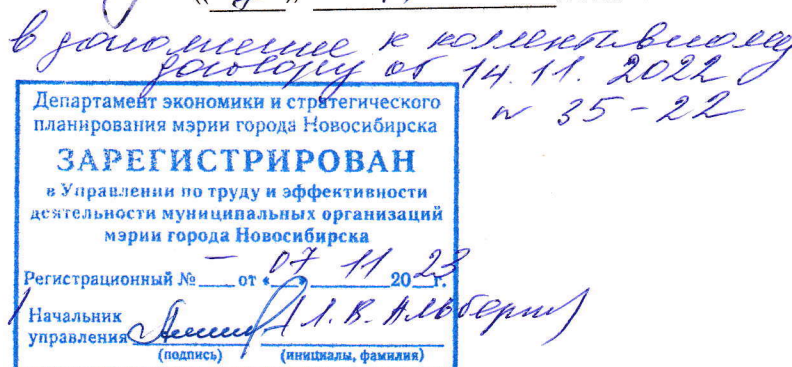 в дополнение к коллективному
договору от 14.11.2022
№ 35-22
Департамент экономики и стратегического
планирования мэрии города Новосибирска
ЗАРЕГИСТРИРОВАН
в Управлении по труду и эффективности
деятельности муниципальных организаций
мэрии города Новосибирска
Регистрационный № — от «07» 11 2023 г.
Начальник
управления
(подпись) (инициалы, фамилия)